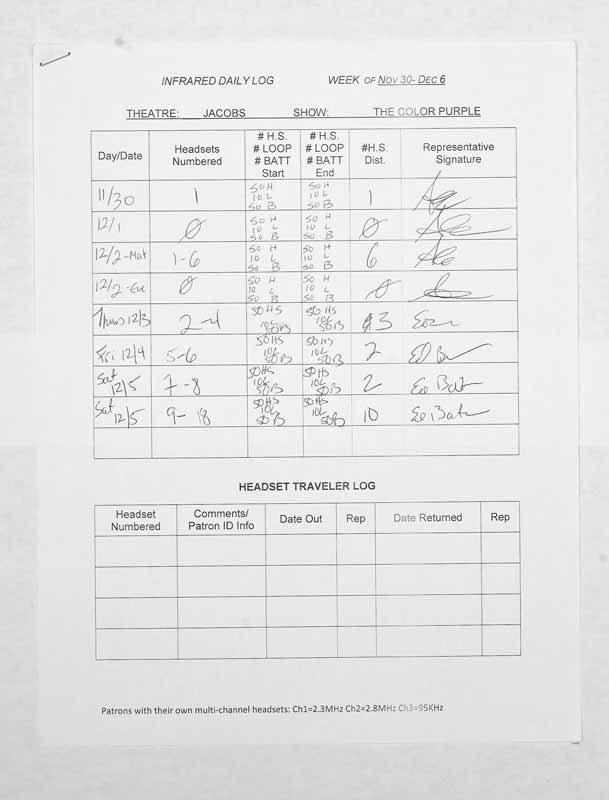 INFRARED DAILY LOG WEEK OF NOV 30- DEC 6
THEATRE: JACOBS SHOW: THE COLOR PURPLE
Day/Date Headsets Numbered # H.S. # LOOP # BATT Start # H.S. # LOOP # BATT End #H.S. Dist. Representative Signature
11/30 1 50 H 10 L 50 B 50 H 10 L 50 B 1
12/1 Ø 50 H 10 L 50 B 50 H 10 L 50 B Ø
12/2-Mat 1-6 50 H 10 L 50 B 50 H 10 L 50 B 6
12/2-Eve Ø 50 H 10 L 50 B 50 H 10 L 50 B Ø
Thurs 12/3 2-4 50 HS 10L 50B 50 HS 10L 50B 3
Fri 12/4 5-6 50HS 10L 50B 50HS 10L 50B 2
Sat 12/5 7-8 50HS 10L 50B 50HS 10L 50B 2
Sat 12/5 9-18 50HS 10L 50B 50HS 10L 50B 10
HEADSET TRAVELER LOG
Headset Numbered Comments/ Patron ID Info Date Out Rep Date Returned Rep
Patrons with their own multi-channel headsets: Ch1=2.3MHz Ch2=2.8MHz Ch3=95KHz